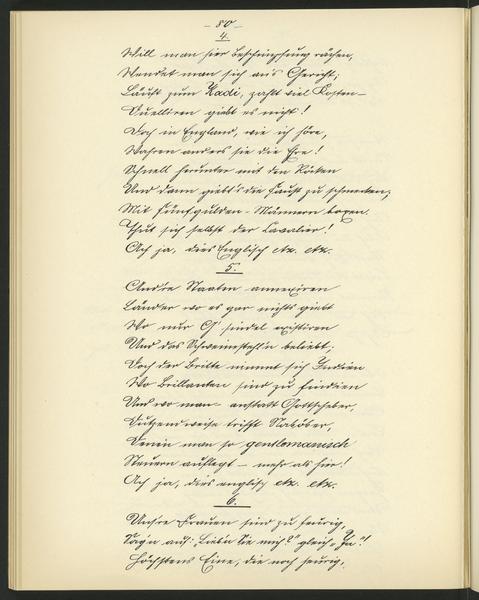 – 80 –
4.
Will man hier Beschimpfung rächen,
Wendet man sich an's Gericht;
Läuft zum Kadi, zahlt viel Kosten –
Duelliren giebt es nicht!
Doch in England, wie ich höre,
Wahren anders sie die Ehre!
Schnell herunter mit den Röcken
Und dann giebt's die Faust zu schmecken;
Mit Fünfgulden-Männern boxen
Thut sich selbst der Cavalier!
Ach ja, dies Englisch etc. etc.
5.
And're Staaten annexiren
Länder wo es gar nichts giebt
Wo nur G'sindel existiren
Und das Schweinstehl'n beliebt;
Doch der Britte nimmt sich Indien
Wo Brillanten sind zu findien
Und wo man anstatt Gottscheber,
Dutzendweise trifft Naböber,
Denen man so gentlemanisch
Steuern auflegt – mehr als hier!
Ach ja, dies englisch etc. etc.
6.
Uns're Frauen sind zu feurig,
Sag'n auf: „Lieb'n Sie mich?" gleich „Ja"!
Höchstens Eine, die noch heurig,